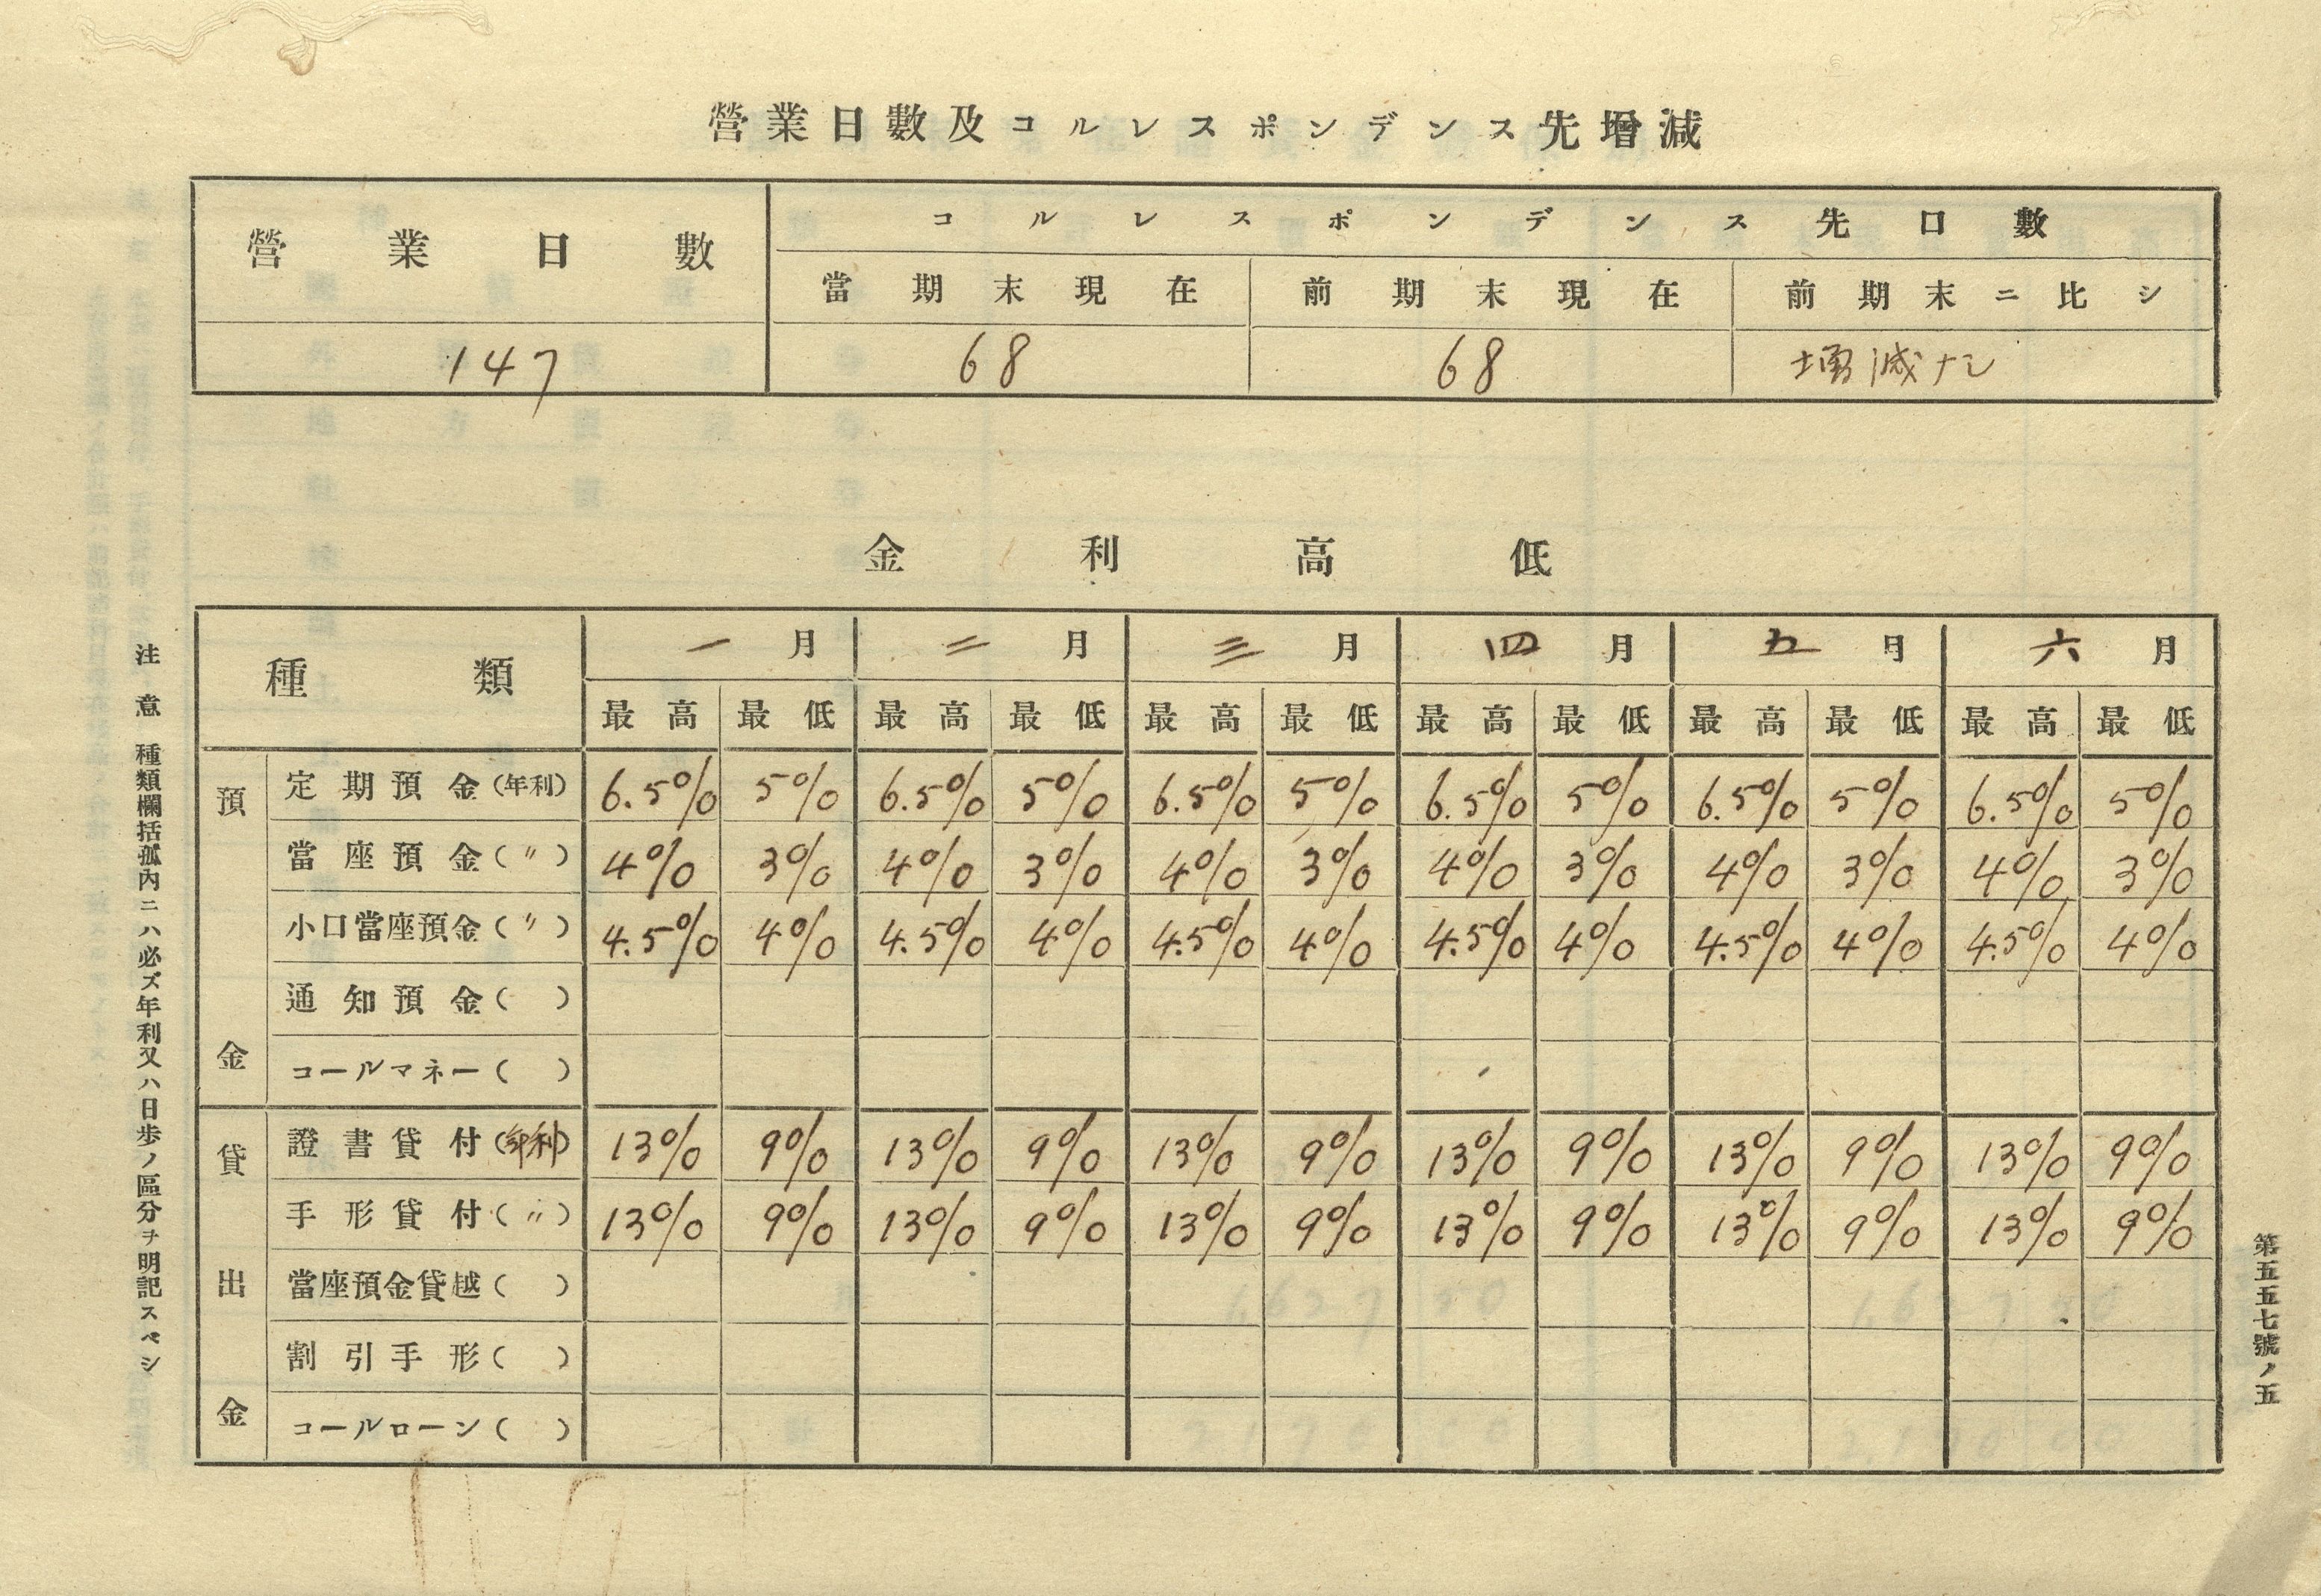 營業日數及コルレスポンデンス先增減
營業日數 コルレスポンデンス先口數
當期末現在 前期末現在 前期末ニ比シ
147 68 68 増減ナシ
金利高低
種類 一月 二月 三月 四月 五月 六月
最高 最低 最高 最低 最高 最低 最高 最低 最高 最低 最高 最低
預金
定期預金(年利) 6.5% 5% 6.5% 5% 6.5% 5% 6.5% 5% 6.5% 5% 6.5% 5%
當座預金(〃) 4% 3% 4% 3% 4% 3% 4% 3% 4% 3% 4% 3%
小口當座預金(〃) 4.5% 4% 4.5% 4% 4.5% 4% 4.5% 4% 4.5% 4% 4.5% 4%
通知預金( )
コールマネー( )
貸出金
證書貸付(年利) 13% 9% 13% 9% 13% 9% 13% 9% 13% 9% 13% 9%
手形貸付(〃) 13% 9% 13% 9% 13% 9% 13% 9% 13% 9% 13% 9%
當座預金貸越( )
割引手形( )
コールローン( )
注意 種類欄括孤內ニハ必ズ年利又ハ日歩ノ區分ヲ明記スベシ
第五五七號ノ五